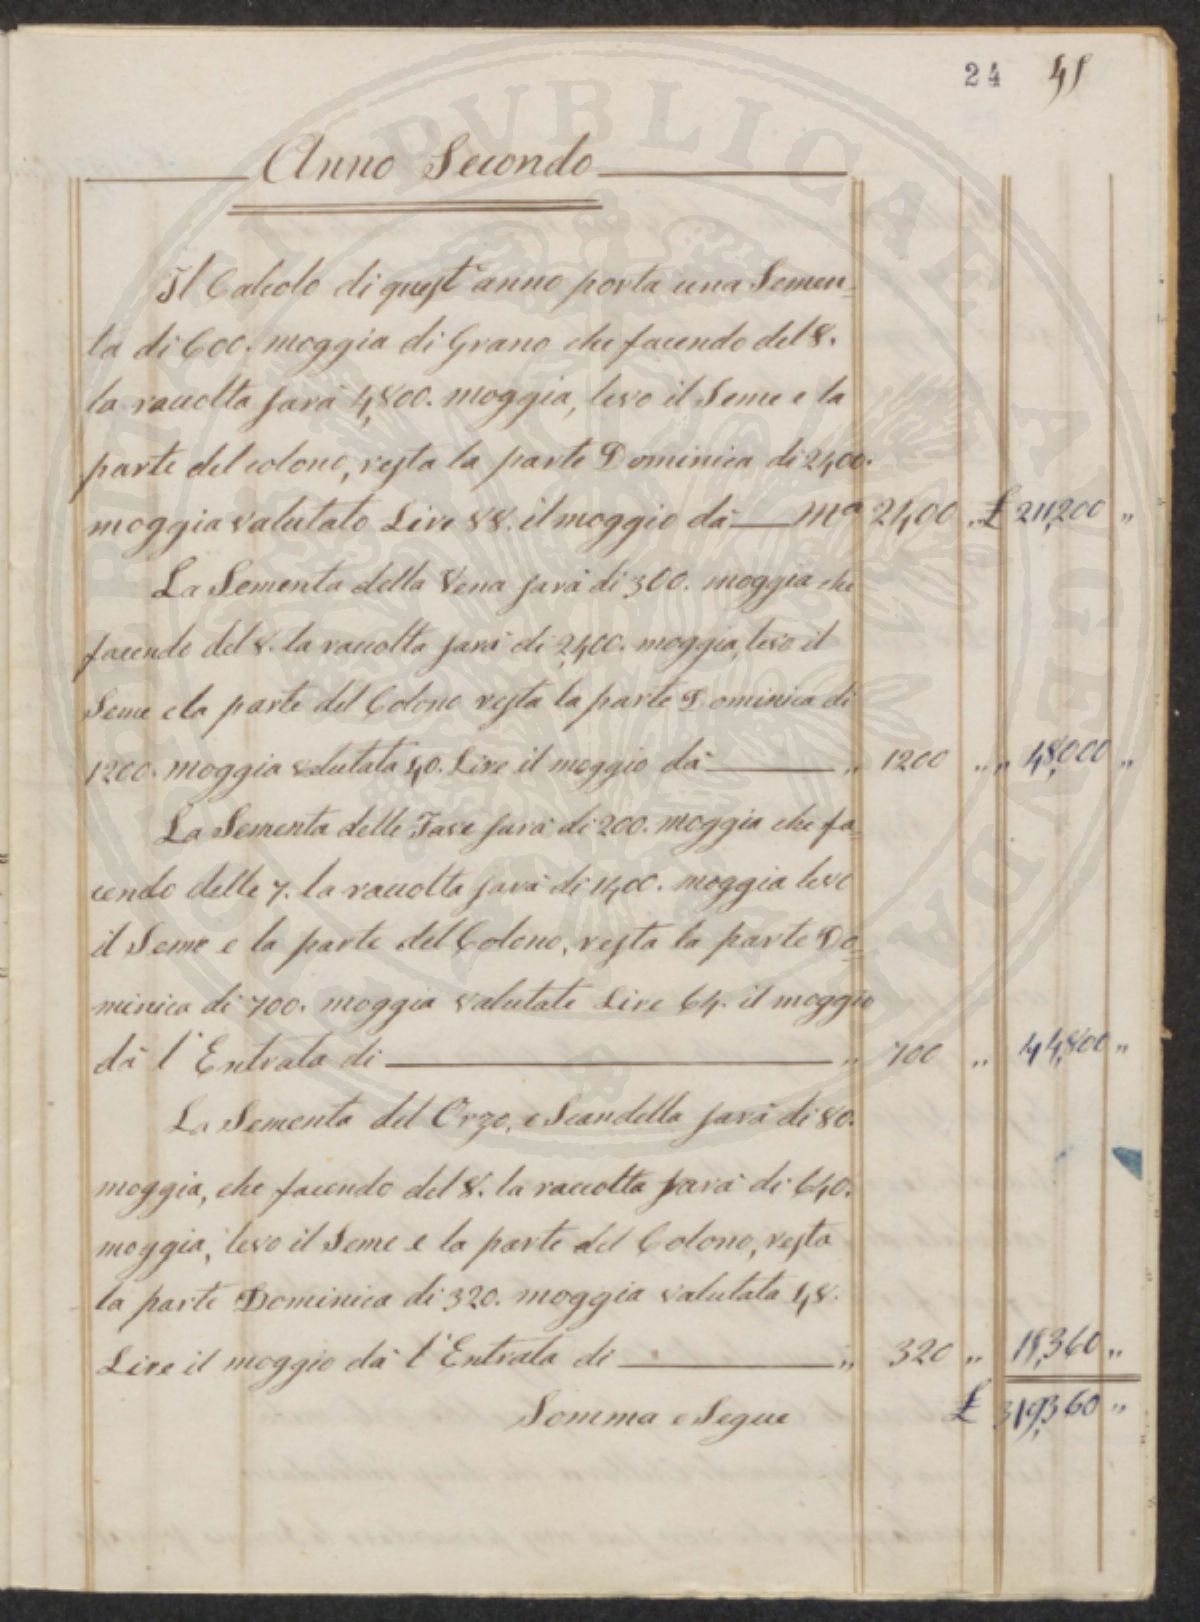 24 41
Anno Secondo
Il Calcolo di quest'anno porta una Semen=
ta di 600. moggia di Grano che facendo del 8.
la raccolta sarà 4,800. moggia, levo il Seme e la
parte del colono, resta la parte Dominica di 2400.
moggia valutato Lire 88. il moggio dà — Ma 2400 ,, £ 211,200 ,,
La Sementa della Vena sarà di 300. moggia che
facendo del 8. la raccolta sarà di 2,400. moggia, levo il
Seme e la parte del Colono resta la parte Dominica di
1200. moggia valutata 40. Lire il moggio dà — ,, 1200 ,, ,, 48,000 ,,
La Sementa delle Fave sarà di 200. moggia che fa=
cendo delle 7. la raccolta sarà di 1400. moggia levo
il Seme e la parte del Colono, resta la parte Do=
minica di 700. moggia valutate Lire 64. il moggio
dà l'Entrata di — ,, 700 ,, 44,800 ,,
La Sementa del Orzo, e Scandella sarà di 80.
moggia, che facendo del 8. la raccolta sarà di 640.
moggia, levo il Seme e la parte del Colono, resta
la parte Dominica di 320. moggia valutata 48.
Lire il moggio dà l'Entrata di — ,, 320 ,, 15,360 ,,
Somma e Segue £ 319,360 ,,